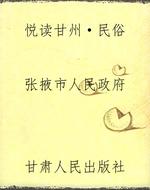 悦读甘州·民俗
张掖市人民政府
甘肃人民出版社